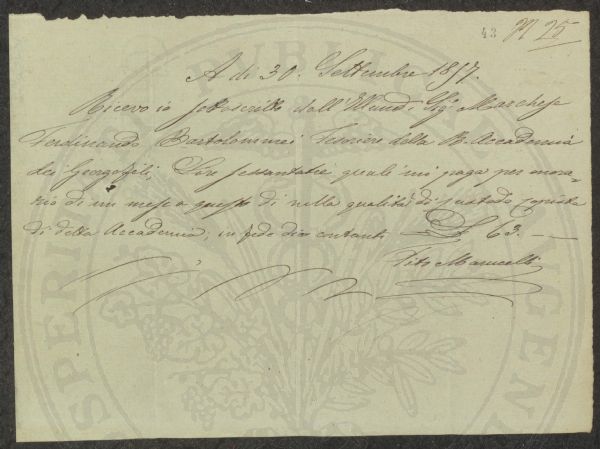 43 N 25
A dì 30. Settembre 1857.
Ricevo io sottoscritto dall' Sig.r Marchese
Ferdinando Bartolommei Tesoriere della R. Accademia
dei Georgofili, Lire sessantatre quali mi paga per onora=
rio di un mese a questo dì nella qualità di custode copista
di detta Accademia, in fede dico contanti £ 63. —
Tito Marucelli
PUBLI
PROSPERI
AUGEND